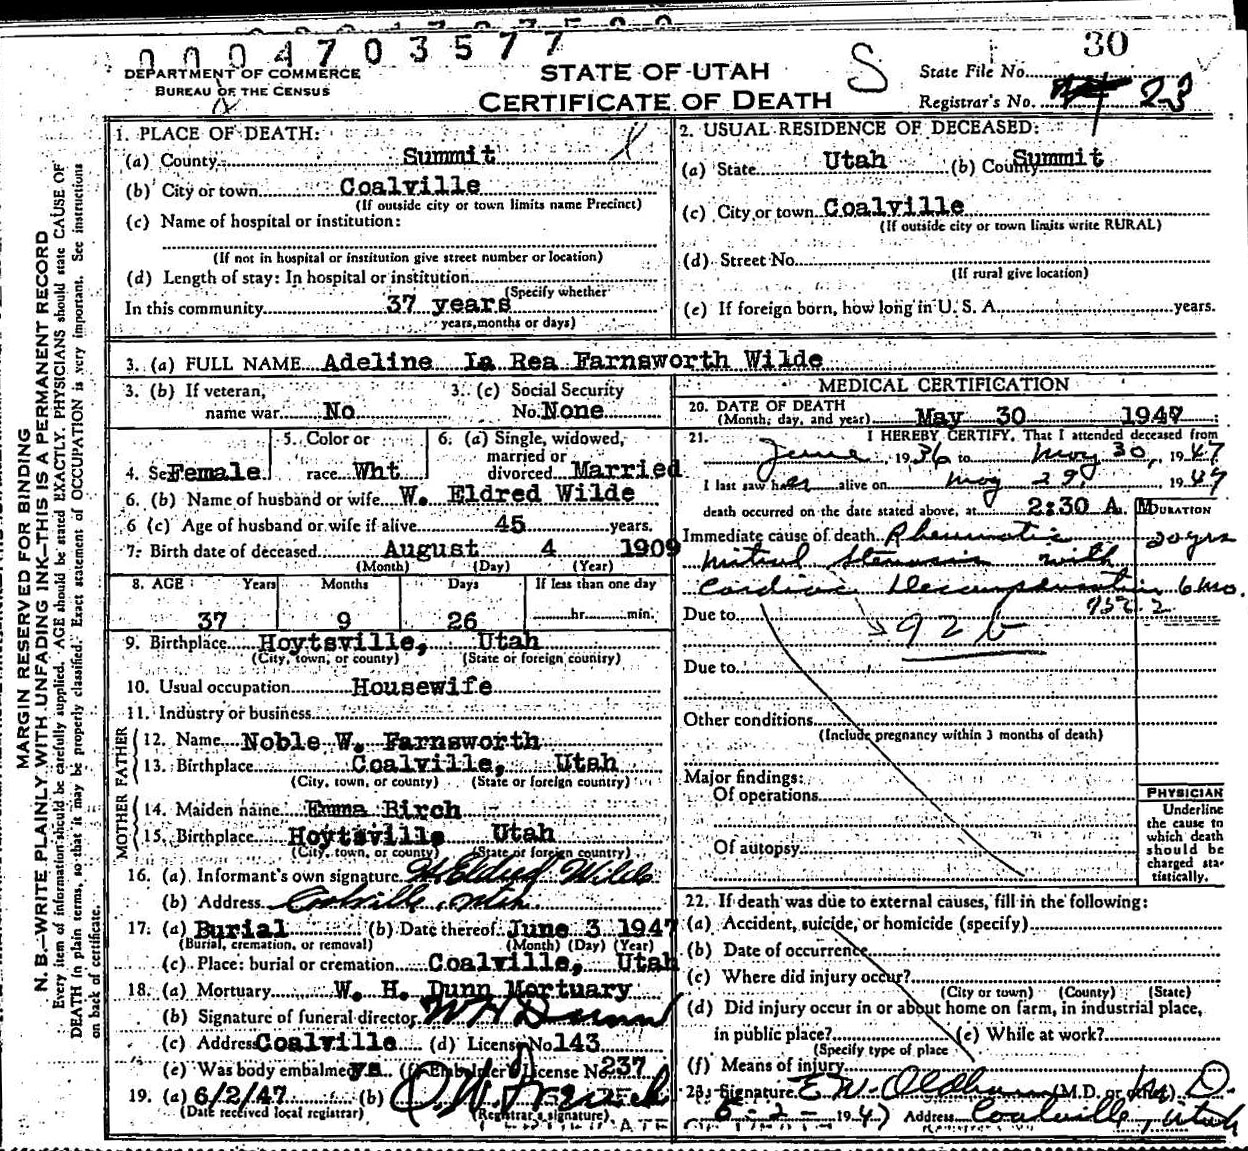 0004703577
30
DEPARTMENT OF COMMERCE
BUREAU OF THE CENSUS
STATE OF UTAH
CERTIFICATE OF DEATH
S
State File No.
Registrar's No. 23
MARGIN RESERVED FOR BINDING
N. B.—WRITE PLAINLY WITH UNFADING INK—THIS IS A PERMANENT RECORD
Every item of information should be carefully supplied. AGE should be stated EXACTLY. PHYSICIANS should state CAUSE OF
DEATH in plain terms, so that it may be properly classified. Exact statement of OCCUPATION is very important. See instructions
on back of certificate.
1. PLACE OF DEATH:
(a) County Summit
(b) City or town Coalville
(If outside city or town limits name Precinct)
(c) Name of hospital or institution:
(If not in hospital or institution give street number or location)
(d) Length of stay: In hospital or institution
(Specify whether
In this community 37 years
years, months or days)
2. USUAL RESIDENCE OF DECEASED:
(a) State Utah (b) County Summit
(c) City or town Coalville
(If outside city or town limits write RURAL)
(d) Street No.
(If rural give location)
(e) If foreign born, how long in U. S. A. years.
3. (a) FULL NAME Adeline La Rea Farnsworth Wilde
3. (b) If veteran, 3. (c) Social Security
name war No No. None
4. Sex Female
5. Color or
race Wht
6. (a) Single, widowed,
married or
divorced Married
6. (b) Name of husband or wife W. Eldred Wilde
6 (c) Age of husband or wife if alive 45 years.
7. Birth date of deceased August 4 1909
(Month) (Day) (Year)
8. AGE Years Months Days If less than one day
37 9 26 hr. min.
9. Birthplace Hoytsville, Utah
(City, town, or county) (State or foreign country)
10. Usual occupation Housewife
11. Industry or business
FATHER
12. Name Noble W. Farnsworth
13. Birthplace Coalville, Utah
(City, town, or county) (State or foreign country)
MOTHER
14. Maiden name Emma Birch
15. Birthplace Hoytsville Utah
(City, town, or county) (State or foreign country)
16. (a) Informant's own signature W. Eldred Wilde
(b) Address Coalville, Utah
17. (a) Burial (b) Date thereof June 3 1947
(Burial, cremation, or removal) (Month) (Day) (Year)
(c) Place: burial or cremation Coalville, Utah
18. (a) Mortuary W. H. Dunn Mortuary
(b) Signature of funeral director W H Dunn
(c) Address Coalville (d) License No. 143
(e) Was body embalmed yes (f) Embalmer's License No. 237
19. (a) 6/2/47 (b)
(Date received local registrar) (Registrar's signature)
MEDICAL CERTIFICATION
20. DATE OF DEATH
(Month, day, and year) May 30 1947
21. I HEREBY CERTIFY, That I attended deceased from
June, 1936 to May 30, 1947
I last saw her alive on May 29 1947
death occurred on the date stated above, at 2:30 A. M
DURATION
Immediate cause of death Rheumatic 20 yrs
mitral stenosis with
Cardiac Decompensation 6 mo.
Due to 92b
Due to
Other conditions
(Include pregnancy within 3 months of death)
Major findings:
Of operations
Of autopsy
PHYSICIAN
Underline
the cause to
which death
should be
charged sta-
tistically.
22. If death was due to external causes, fill in the following:
(a) Accident, suicide, or homicide (specify)
(b) Date of occurrence
(c) Where did injury occur?
(City or town) (County) (State)
(d) Did injury occur in or about home on farm, in industrial place,
in public place? (e) While at work?
(Specify type of place
(f) Means of injury
23. Signature E. W. Oldham (M.D. or other) M. D.
6-2-1947 Address Coalville, Utah